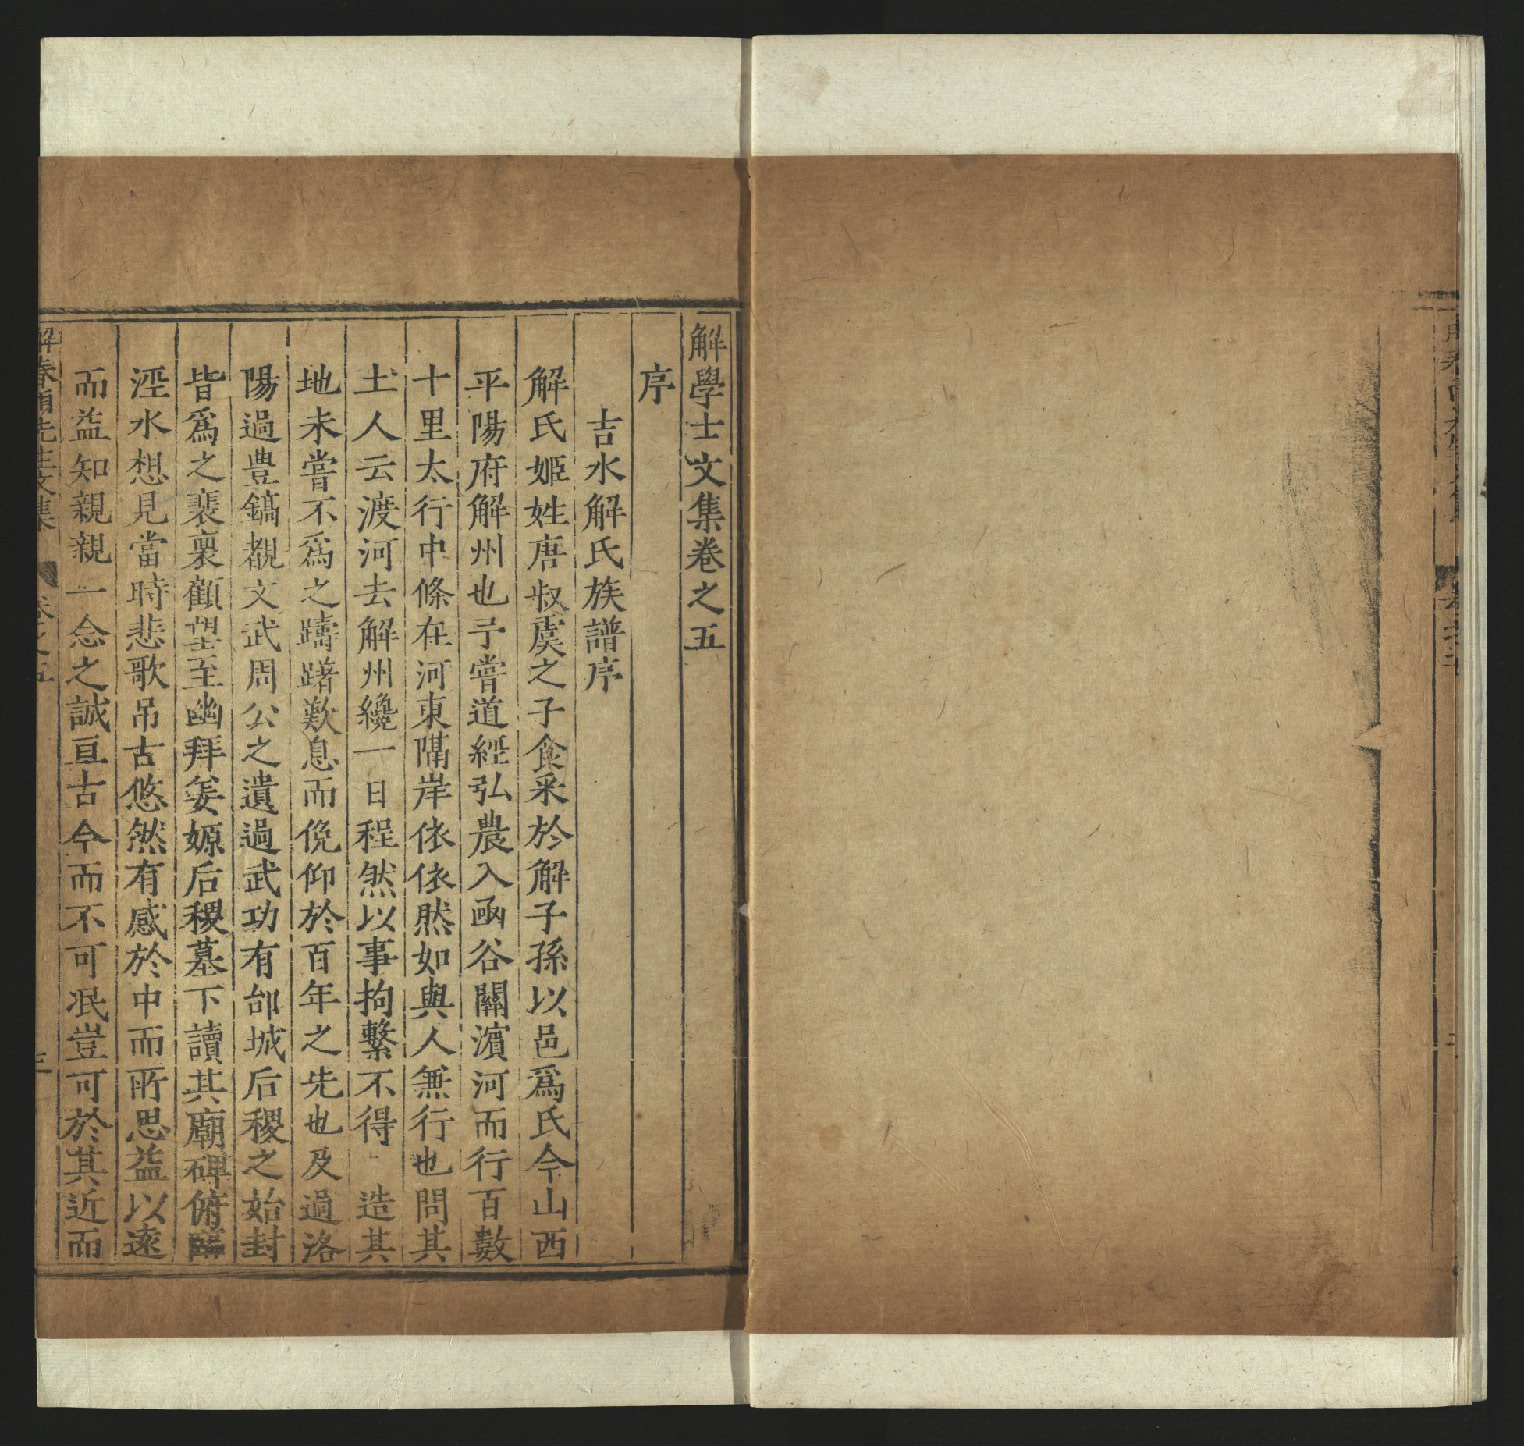 解學士文集卷之五
序
吉水解氏族譜序
解氏姬姓唐叔虞之子食采於解子孫以邑爲氏今山西
平陽府解州也予嘗道經弘農入函谷關濵河而行百數
十里太行中條在河東隔岸依依然如與人無行也問其
土人云渡河去解州纔一日程然以事拘繫不得 造其
地未嘗不爲之躊躇歎息而俛仰於百年之先也及過洛
陽過豊鎬覩文武周公之遺過武功有邰城后稷之始封
皆爲之裵褱顧望至豳拜姜嫄后稷墓下讀其廟碑俯臨
涇水想見當時悲歌吊古悠然有感於中而所思益以遠
而益知親親一念之誠亘古今而不可泯豈可於其近而
解春雨先生文集 卷之五